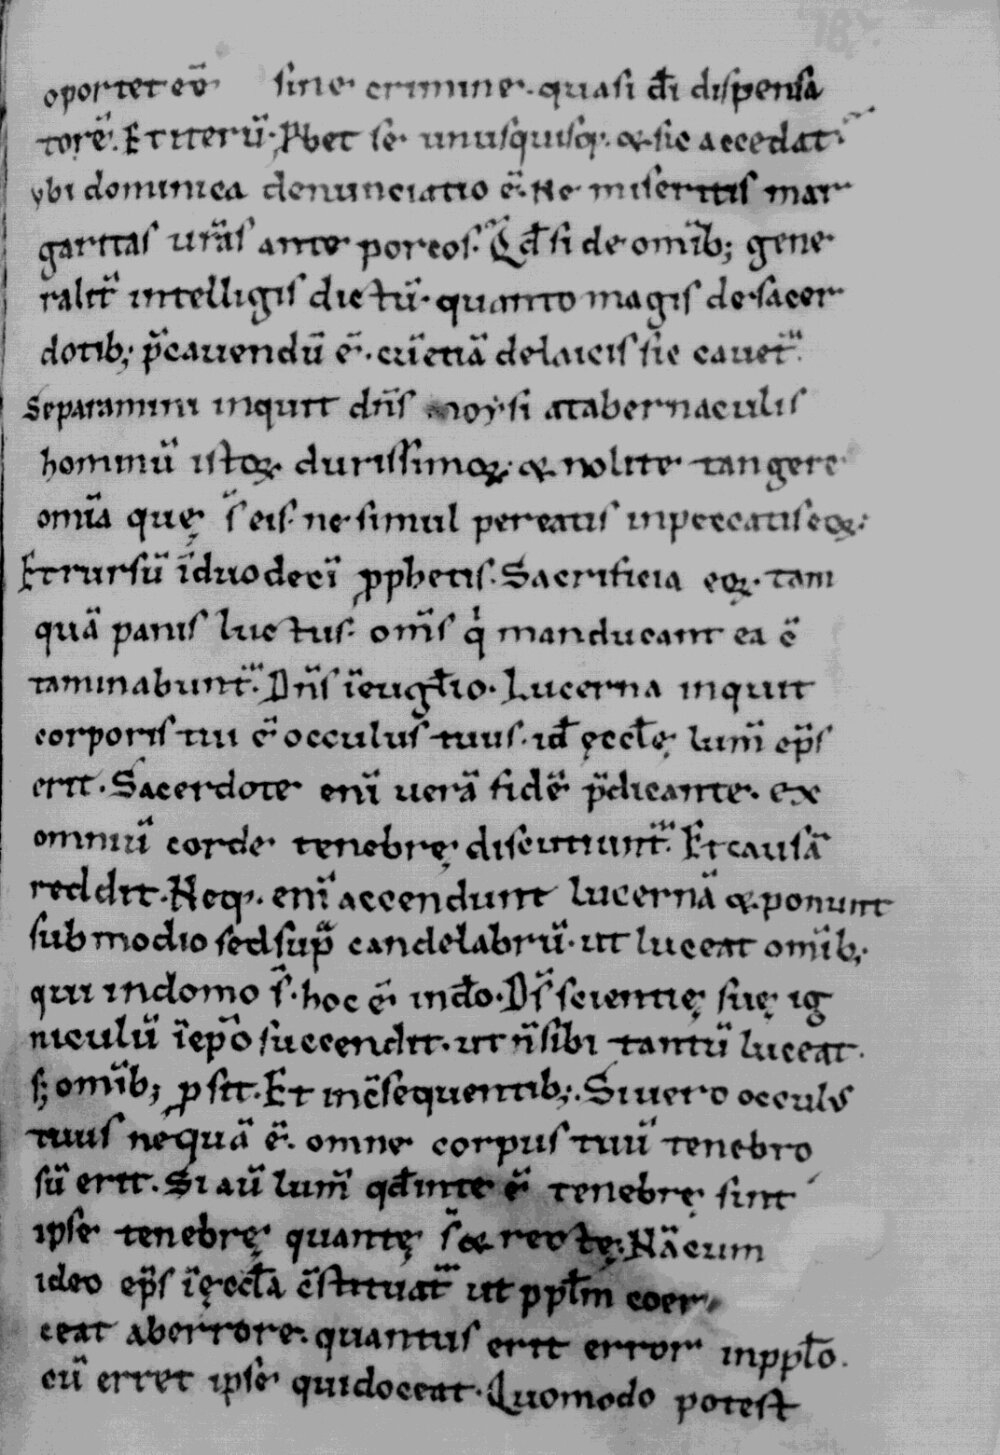 oportet eū sine crimine. quasi dī dispensa
torē. Et iterū. Pbet se unusquisq; & sic accedat.
ybi dominica denunciatio ē. Ne miseritis mar
garitas urās ante porcos. Qđ si de omīb; gene
ralit̄ intelligis dictū. quanto magis de sacer
dotib; p̄cauendū ē. cū etiā de laicis sic cauet̄.
Separamini inquit dn̄s moysi a tabernaculis
hominū istoꝝ durissimoꝝ. & nolite tangere
om̄ia quę s̄ eis. ne simul pereatis in peccatis eoꝝ.
Et rursū ī duodecī ꝓphetis. Sacrificia eoꝝ. tam
quā panis luctus. om̄s qͥ manducant ea c̄
taminabunt̄. Dn̄s ī eugłio. Lucerna inquit
corporis tui ē occulus tuus. id ęccłę lum̄ ep̄s
erit. Sacerdote enī uerā fidē p̄dicante. ex
omniū corde tenebrę discutiunt̄. Et causā
reddit. Neq; enī accendunt lucernā & ponunt
sub modio sed sup̄ candelabrū. ut luceat omīb;
qui in domo s̄. hoc ē in dō. Ds̄ scientię suę ig
niculū ī ep̄o succendit. ut n̄ sibi tantū luceat.
s; omīb; ꝓsit. Et in c̄sequentib;. Si uero occuls
tuus nequā ē. omne corpus tuū tenebro
sū erit. Si aū lum̄ qđ in te ē tenebrę sint
ipse tenebrę quantę s̄ & rectę. Nā cum
ideo ep̄s ī ęccła c̄stituat̄ ut ppłm coer
ceat ab errore. quantus erit error in ppło.
cū erret ipse qui doceat. Quomodo potest